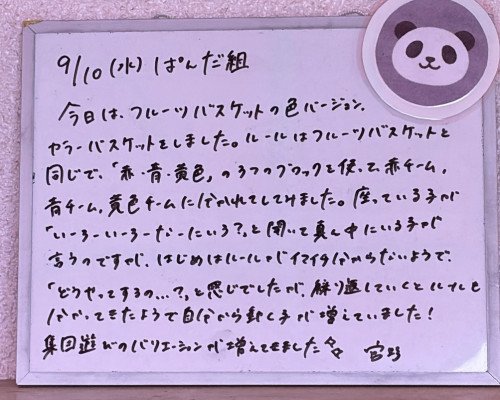 9/10(水) ぱんだ組
今日は、フルーツバスケットの色バージョン、
カラーバスケットをしました。ルールはフルーツバスケットと
同じで、「赤・青・黄色」の3つのブロックを使って、赤チーム、
青チーム、黄色チームに分かれてしてみました。座っている子が
「いーろーいーろーなーにいろ?」と聞いて真ん中にいる子が
言うのですが、はじめはルールがイマイチ分からないようで、
「どうやってするの…?」と感じでしたが、繰り返していくとルールも
分かってきたようで自分から動く子が増えていました!
集団遊びのバリエーションが増えてきました☆ 宮野